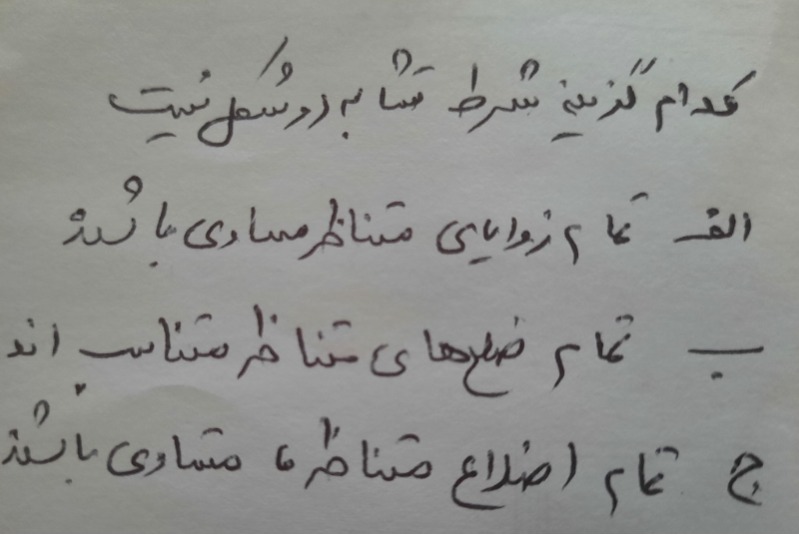 کدام گزینه شرط تشابه دو شکل نیست
الف تمام زوایای متناظر مساوی باشند
ب تمام ضلع‌های متناظر متناسب اند
ج تمام اضلاع متناظر، مساوی باشند